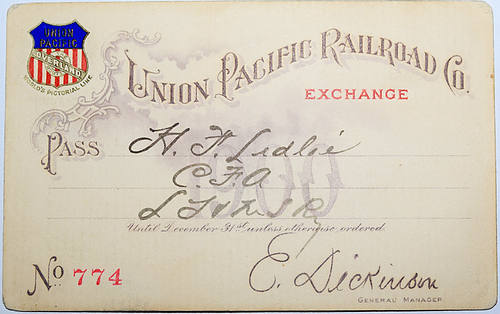 UNION
PACIFIC
OVERLAND
WORLD'S PICTORIAL LINE
UNION PACIFIC RAILROAD CO.
EXCHANGE
PASS H. F. Ledlie
C.F.A
1900
Until December 31st unless otherwise ordered.
No 774
E. Dickinson
GENERAL MANAGER